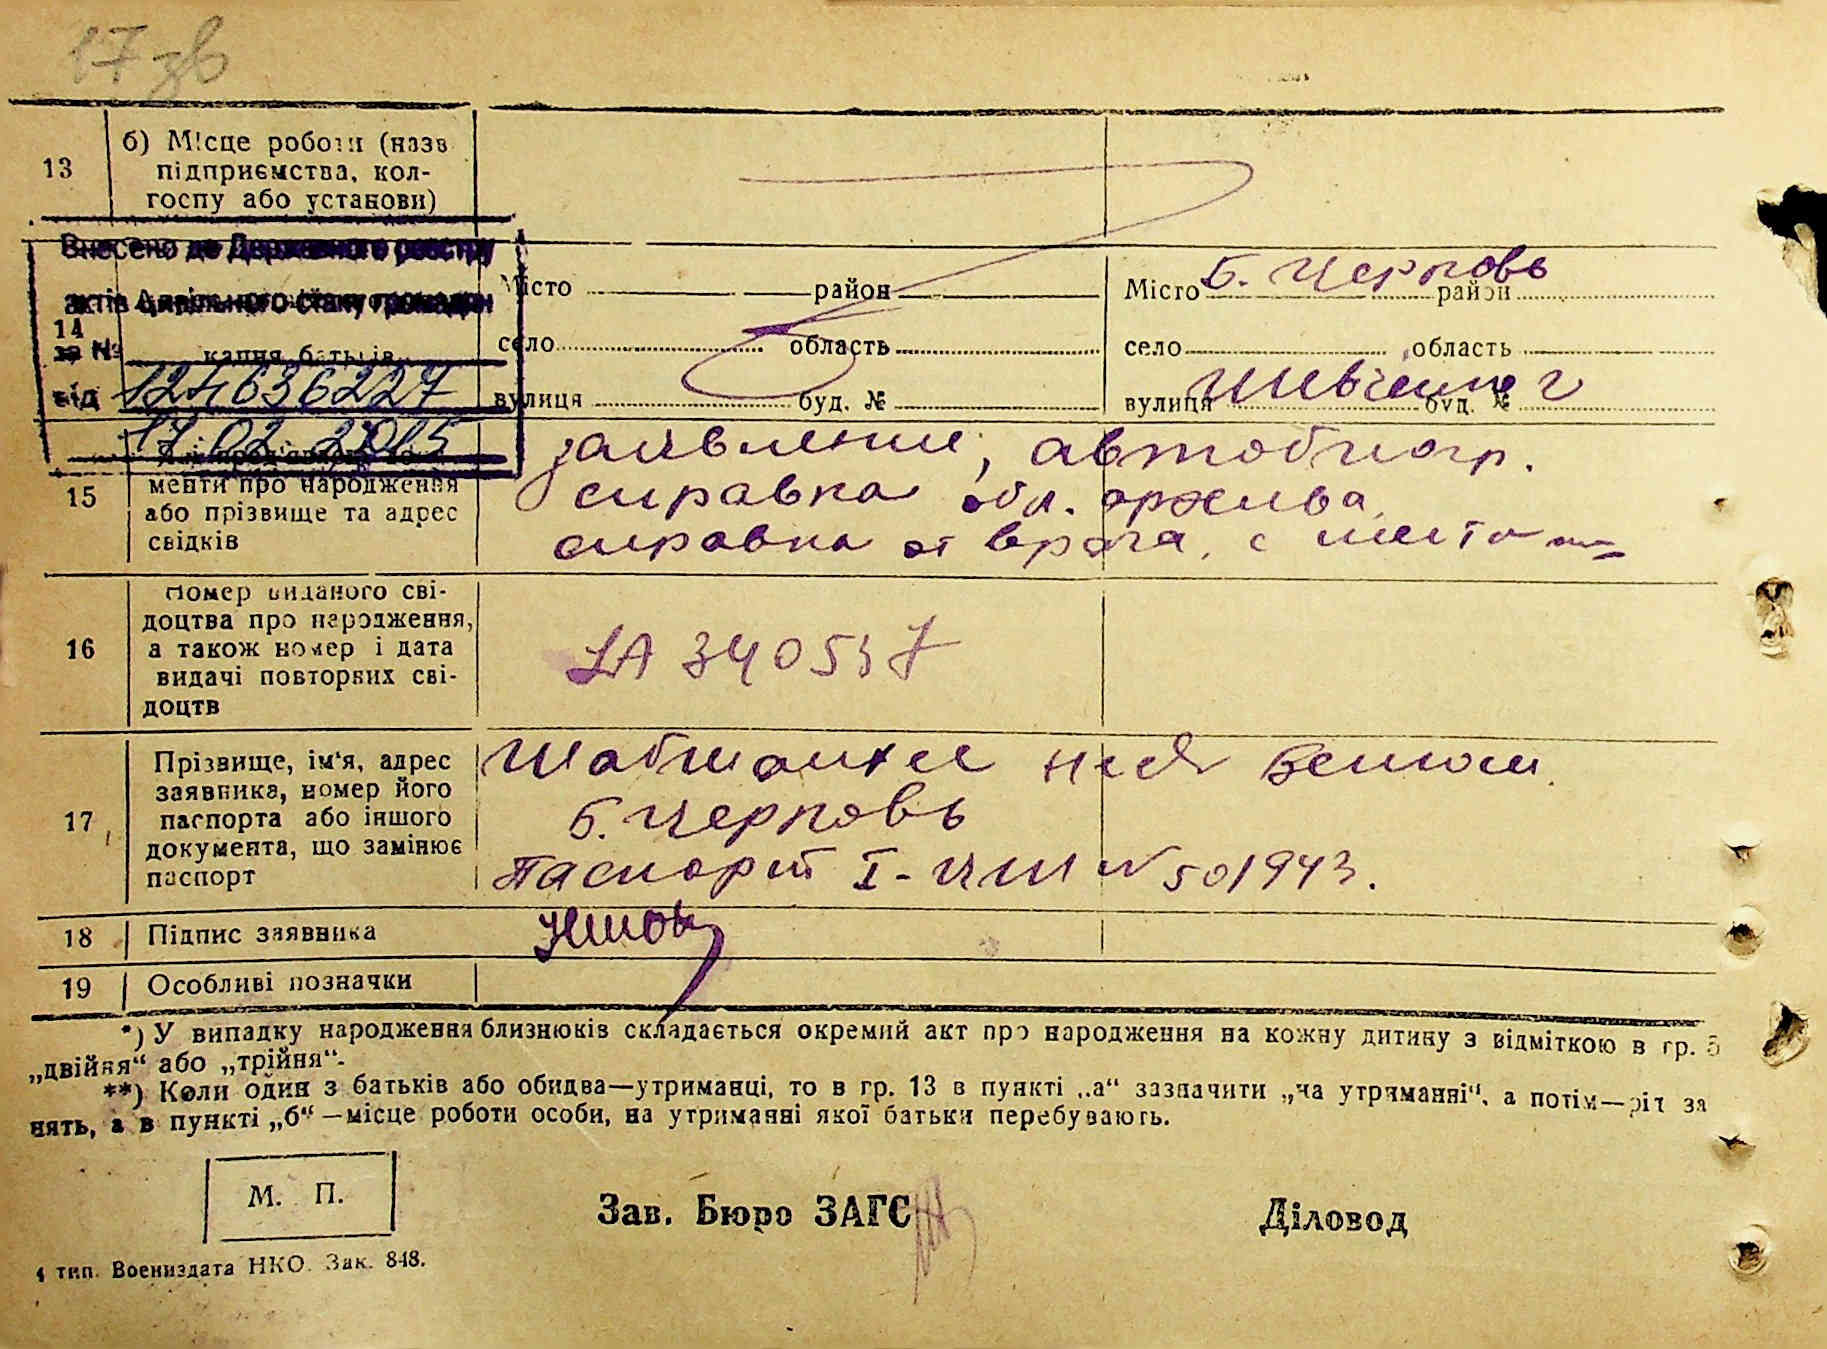 17 зв
13
б) Місце роботи (назв
підприємства, кол-
госпу або установи)
Внесено до Державного реєстру
актів цивільного стану громадян
14
за №
кання батьків
від 124636227
17.02.2015
Місто район
село область
вулиця буд. №
Місто Б. Церковь район
село область
вулиця буд. №
15
менти про народження
або прізвище та адрес
свідків
заявление, автобиогр.
справка обл. архива,
справка от врача, с места
16
Номер виданого сві-
доцтва про народження,
а також номер і дата
видачі повторних сві-
доцтв
340537
17
Прізвище, ім'я, адрес
заявника, номер його
паспорта або іншого
документа, що замінює
паспорт
Б. Церковь
Паспорт I- № 501943.
18
Підпис заявника
19
Особливі позначки
*) У випадку народження близнюків складається окремий акт про народження на кожну дитину з відміткою в гр. 5
„двійня“ або „трійня“.
**) Коли один з батьків або обидва—утриманці, то в гр. 13 в пункті „а“ зазначити „на утриманні“, а потім—ріт за
нять, а в пункті „б“ —місце роботи особи, на утриманні якої батьки перебувають.
М. П.
Зав. Бюро ЗАГС
Діловод
4 тип. Воениздата НКО. Зак. 848.